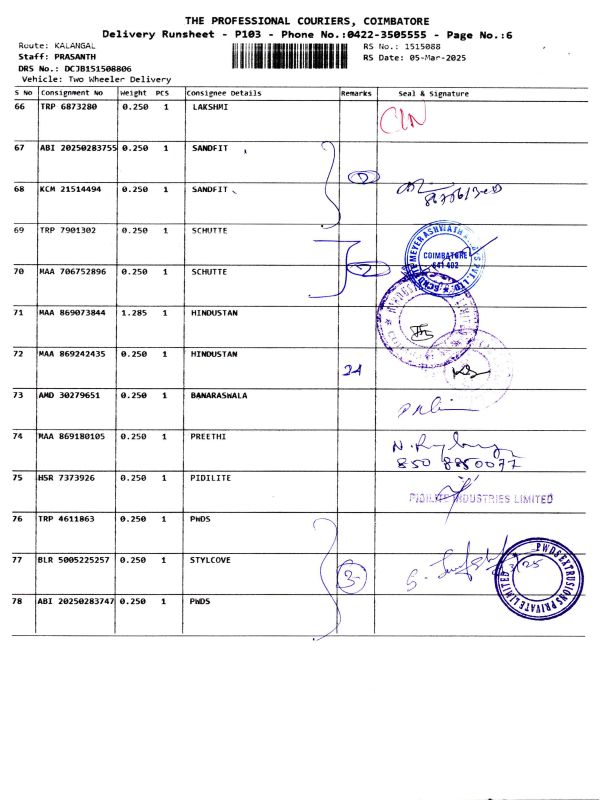 THE PROFESSIONAL COURIERS, COIMBATORE
Delivery Runsheet - P103 - Phone No.:0422-3505555 - Page No.:6
Route: KALANGAL RS No.: 1515088
Staff: PRASANTH RS Date: 05-Mar-2025
DRS No.: DCJB151508806
Vehicle: Two Wheeler Delivery
S No Consignment No Weight PCS Consignee Details Remarks Seal & Signature
66 TRP 6873280 0.250 1 LAKSHMI
67 ABI 20250283755 0.250 1 SANDFIT
68 KCM 21514494 0.250 1 SANDFIT
69 TRP 7901302 0.250 1 SCHUTTE
COIMBATORE
641 402
70 MAA 706752896 0.250 1 SCHUTTE 2
71 MAA 869073844 1.285 1 HINDUSTAN
72 MAA 869242435 0.250 1 HINDUSTAN
73 AMD 30279651 0.250 1 BANARASWALA
74 MAA 869180105 0.250 1 PREETHI
850 8850077
75 HSR 7373926 0.250 1 PIDILITE
PIDILITE INDUSTRIES LIMITED
76 TRP 4611863 0.250 1 PWDS
77 BLR 5005225257 0.250 1 STYLCOVE 3
PWDS EXTRUSIONS PRIVATE LIMITED
78 ABI 20250283747 0.250 1 PWDS